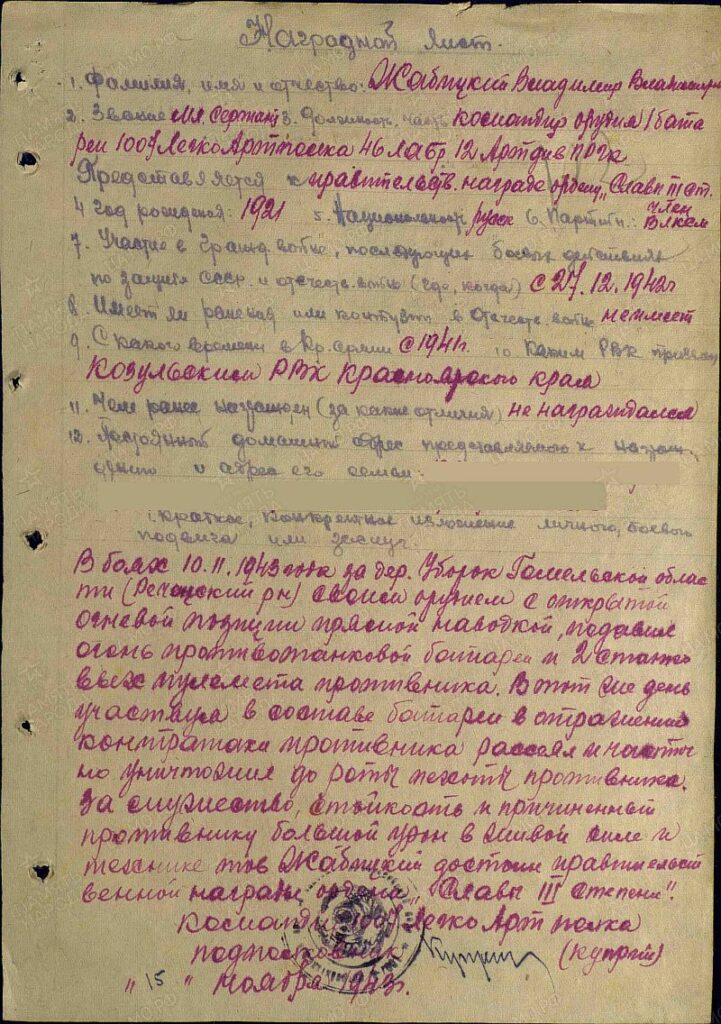 Наградной лист.
1. Фамилия, имя и отчество: Жабицкий Владимир
2. Звание Мл. Сержант 3. Должность, часть командир орудия 1 бата
реи 1007 ЛегкоАртполка 46 Лабр. 12 Артдив ПРГК
Представляется к правительств. награде ордену „Славы III ст.
4 Год рождения: 1921 5. Национальность русск 6. Партийн.: член ВЛКСМ
7. Участие в гражд войне, последующих боевых действиях
по защите СССР и отечеств. войне (где, когда) с 27.12.1942г
8. Имеет ли ранения или контузии в Отечеств. войне не имеет
9. С какого времени в Кр. армии с 1941г. 10 Каким РВК призван
Козульским РВК Красноярского края
11. Чем ранее награжден (за какие отличия) не награждался
12. Постоянный домашний адрес представляемого к награж
дению и адрес его семьи:
(краткое, конкретное изложение личного, боевого
подвига или заслуг.
В боях 10.11.1943 года за дер. Уборок Гомельской облас
ти (Речицкий рн) своим орудием с открытой
огневой позиции прямой наводкой, подавил
огонь противотанковой батареи и 2 станко
вых пулемета противника. В тот же день
участвуя в составе батареи в отражении
контратаки противника рассеял и частич
но уничтожил до роты пехоты противника.
За мужество, стойкость и причиненный
противнику большой урон в живой силе и
технике тов Жабицкий достоин правительст
венной награды ордена „Славы III степени".
Командир 1007 ЛегкоАртполка
подполковник (Куприй)
„15" ноября 1943г.